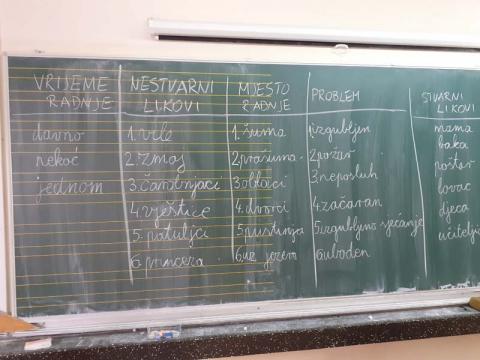 VRIJEME
RADNJE
davno
nekoć
jednom
NESTVARNI
LIKOVI
1. vile
2. zmaj
3. čarobnjaci
4. vještice
5. patuljci
6. princeza
MJESTO
RADNJE
1. šuma
2. prašuma
3. oblaci
4. dvorci
5. pustinja
6.
PROBLEM
1. izgubljen
2. požar
3. neposluh
4. začaran
5. izgubljeno sjećanje
6. uboden
STVARNI
LIKOVI
mama
baka
poštar
lovac
djeca
učitelji